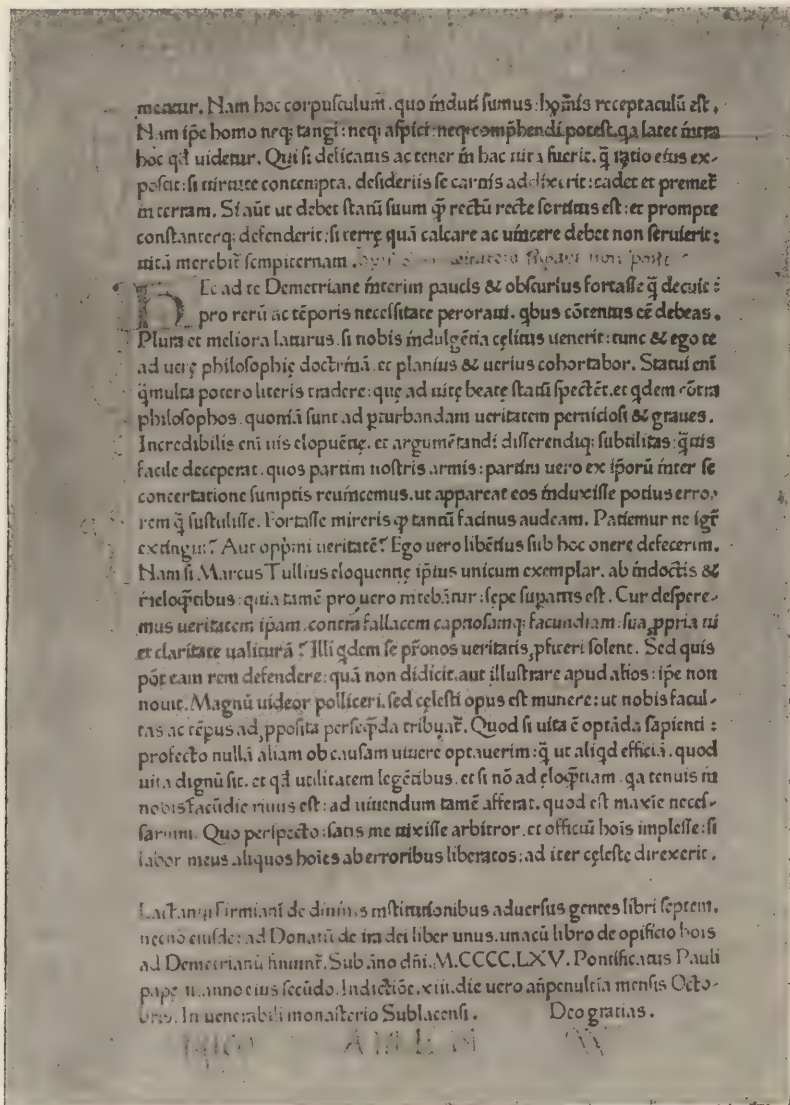 meatur. Nam hoc corpusculum̄. quo īnduti sumus: hoīnis receptaculū est.
Nam ip̄e homo neq; tangi: neq; aspici: neq; comp̄hendi potest. q̄a latet īntra
hoc qđ uidetur. Qui si delicatus ac tener īn hac uita fuerit. q̄ ratio eius ex-
poscit: si uirtute contempta. desideriis se carnis addixerit: cadet et premet̄
in terram. Si aūt ut debet statū suum qp̄ rectū recte sortitus est: et prompte
constanterq; defenderit: si terrę quā calcare ac uincere debet non seruierit:
uitā merebit̄ sempiternam.
HEc ad te Demetriane īnterim paucis & obscurius fortasse q̄ decuit:
pro rerū ac tēporis necessitate peroraui. qbus cōtentus eē debeas.
Plura et meliora laturus. si nobis īndulgētia cęlitus uenerit: tunc & ego te
ad uerę philosophię doctrīnā. et planius & uerius cohortabor. Statui enī
q̄multa potero literis tradere: quę ad uitę beatę statū spectēt. et qdem cōtra
philosophos. quoniā sunt ad p̱turbandam ueritatem perniciosi & graues.
Incredibilis enī uis eloquētię. et argumētandi disserendiq; subtilitas: q̄uis
facile deceperat. quos partim nostris armis: partim uero ex ip̄orū īnter se
concertatione sumptis reuīncemus. ut appareat eos īnduxisse potius erro-
rem q̄ sustulisse. Fortasse mireris qp̄ tantū facinus audeam. Patiemur ne igr̄
extingui? Aut opp̄mi ueritatē? Ego uero libētius sub hoc onere defecerim.
Nam si Marcus Tullius eloquentię ip̄ius unicum exemplar. ab īndoctis &
īneloq̄ntibus: quia tamē pro uero nitebātur: sępe sup̱atus est. Cur despere-
mus ueritatem ip̄am. contra fallacem captiosamq; facundiam: sua ꝓpria ui
et claritate ualiturā? Illi qdem se pr̄onos ueritatis ꝓfiteri solent. Sed quis
pōt eam rem defendere: quā non didicit. aut illustrare apud alios: ip̄e non
nouit. Magnū uideor polliceri. sed cęlesti opus est munere: ut nobis facul-
tas ac tēpus ad ꝓposita perseq̄nda tribuat̄. Quod si uita ē optāda sapienti:
profecto nullā aliam ob causam uiuere optauerim: q̄ ut aliqd efficiā. quod
uita dignū sit. et qđ utilitatem legētibus. et si nō ad ęloq̄ntiam. q̄a tenuis īn
nobis facūdię riuus est: ad uiuendum tamē afferat. quod est maxīe neces-
sarium. Quo perspecto: satis me uixisse arbitror. et officiū hoīs implesse: si
labor meus aliquos hoīes ab erroribus liberatos: ad iter cęleste direxerit.
Lactantii Firmiani de diuinis īnstitutionibus aduersus gentes libri septem.
necnō eiusdē: ad Donatū de ira dei liber unus. unacū libro de opificio hoīs
ad Demetrianū finiunt̄. Sub āno dn̄i. M.CCCC.LXV. Pontificatus Pauli
pape ii. anno eius secūdo. Indictiōe. xiii. die uero an̄penultīa mensis Octo-
bris. In uenerabili monasterio Sublacensi. Deo gratias.